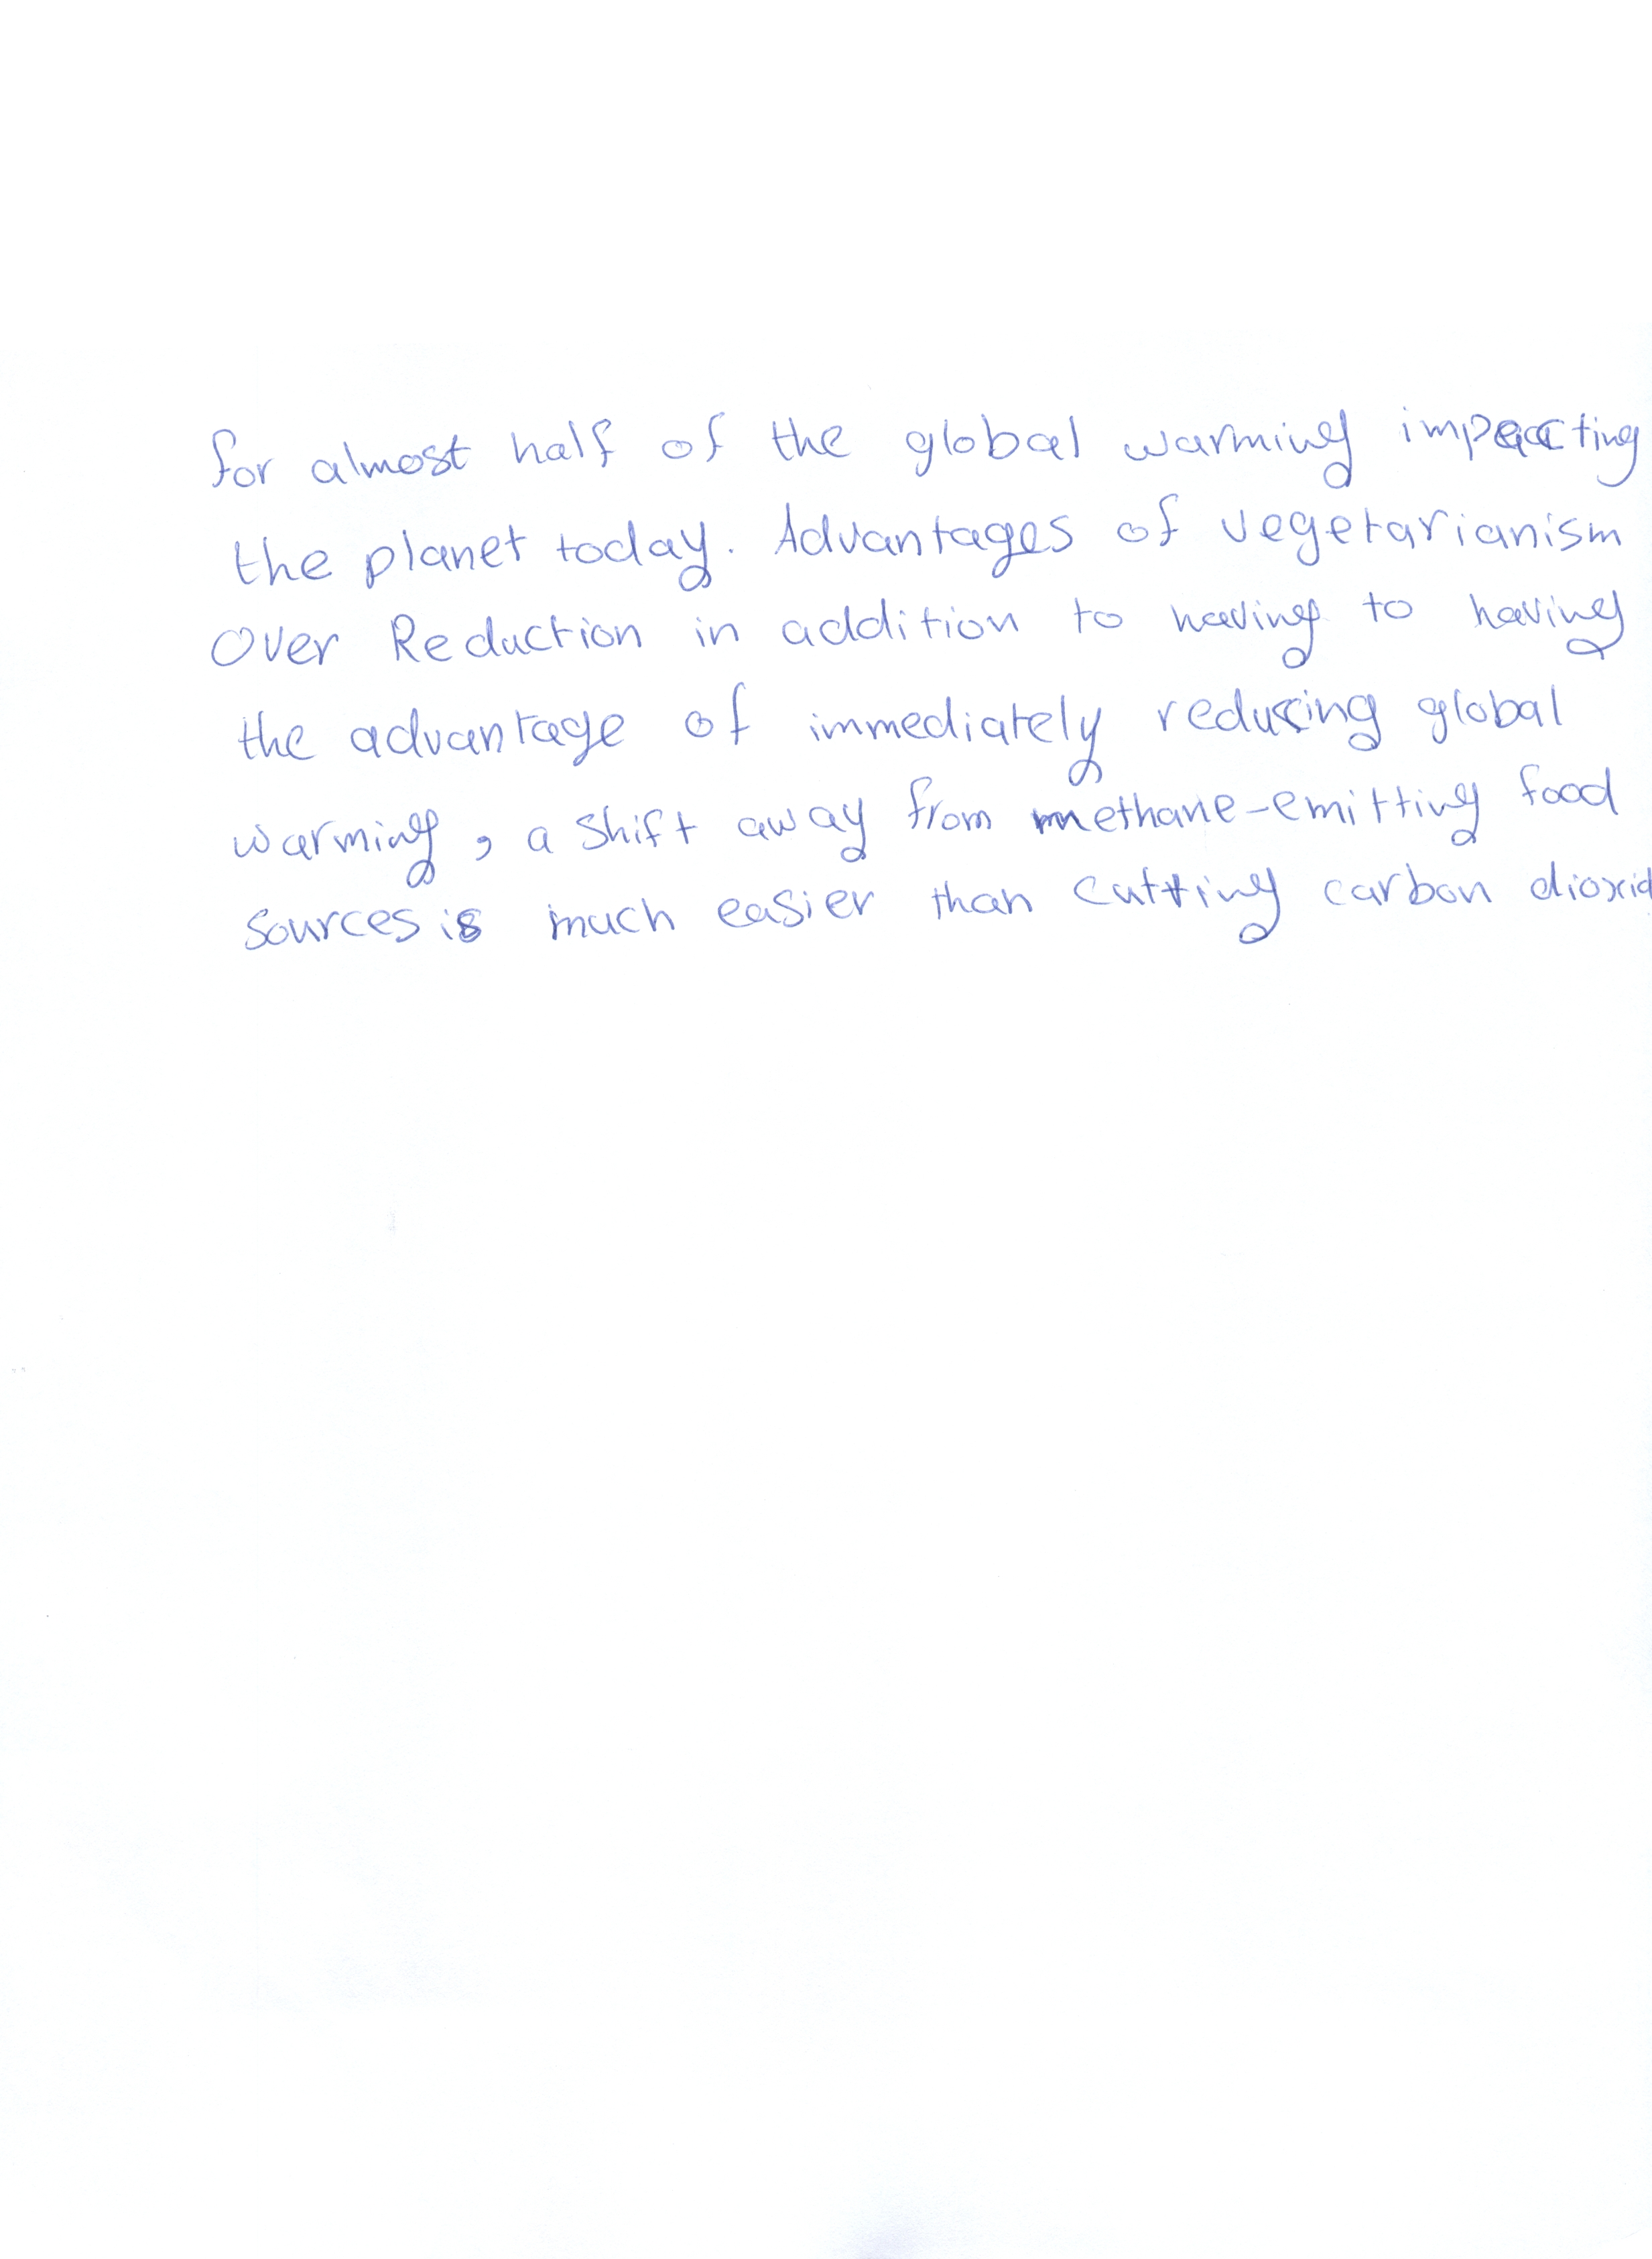 for almost half of the global warming impacting
the planet today. Advantages of vegetarianism
Over Reduction in addition to having to having
the advantage of immediately reducing global
warming, a shift away from methane-emitting food
sources is much easier than cutting carbon dioxid